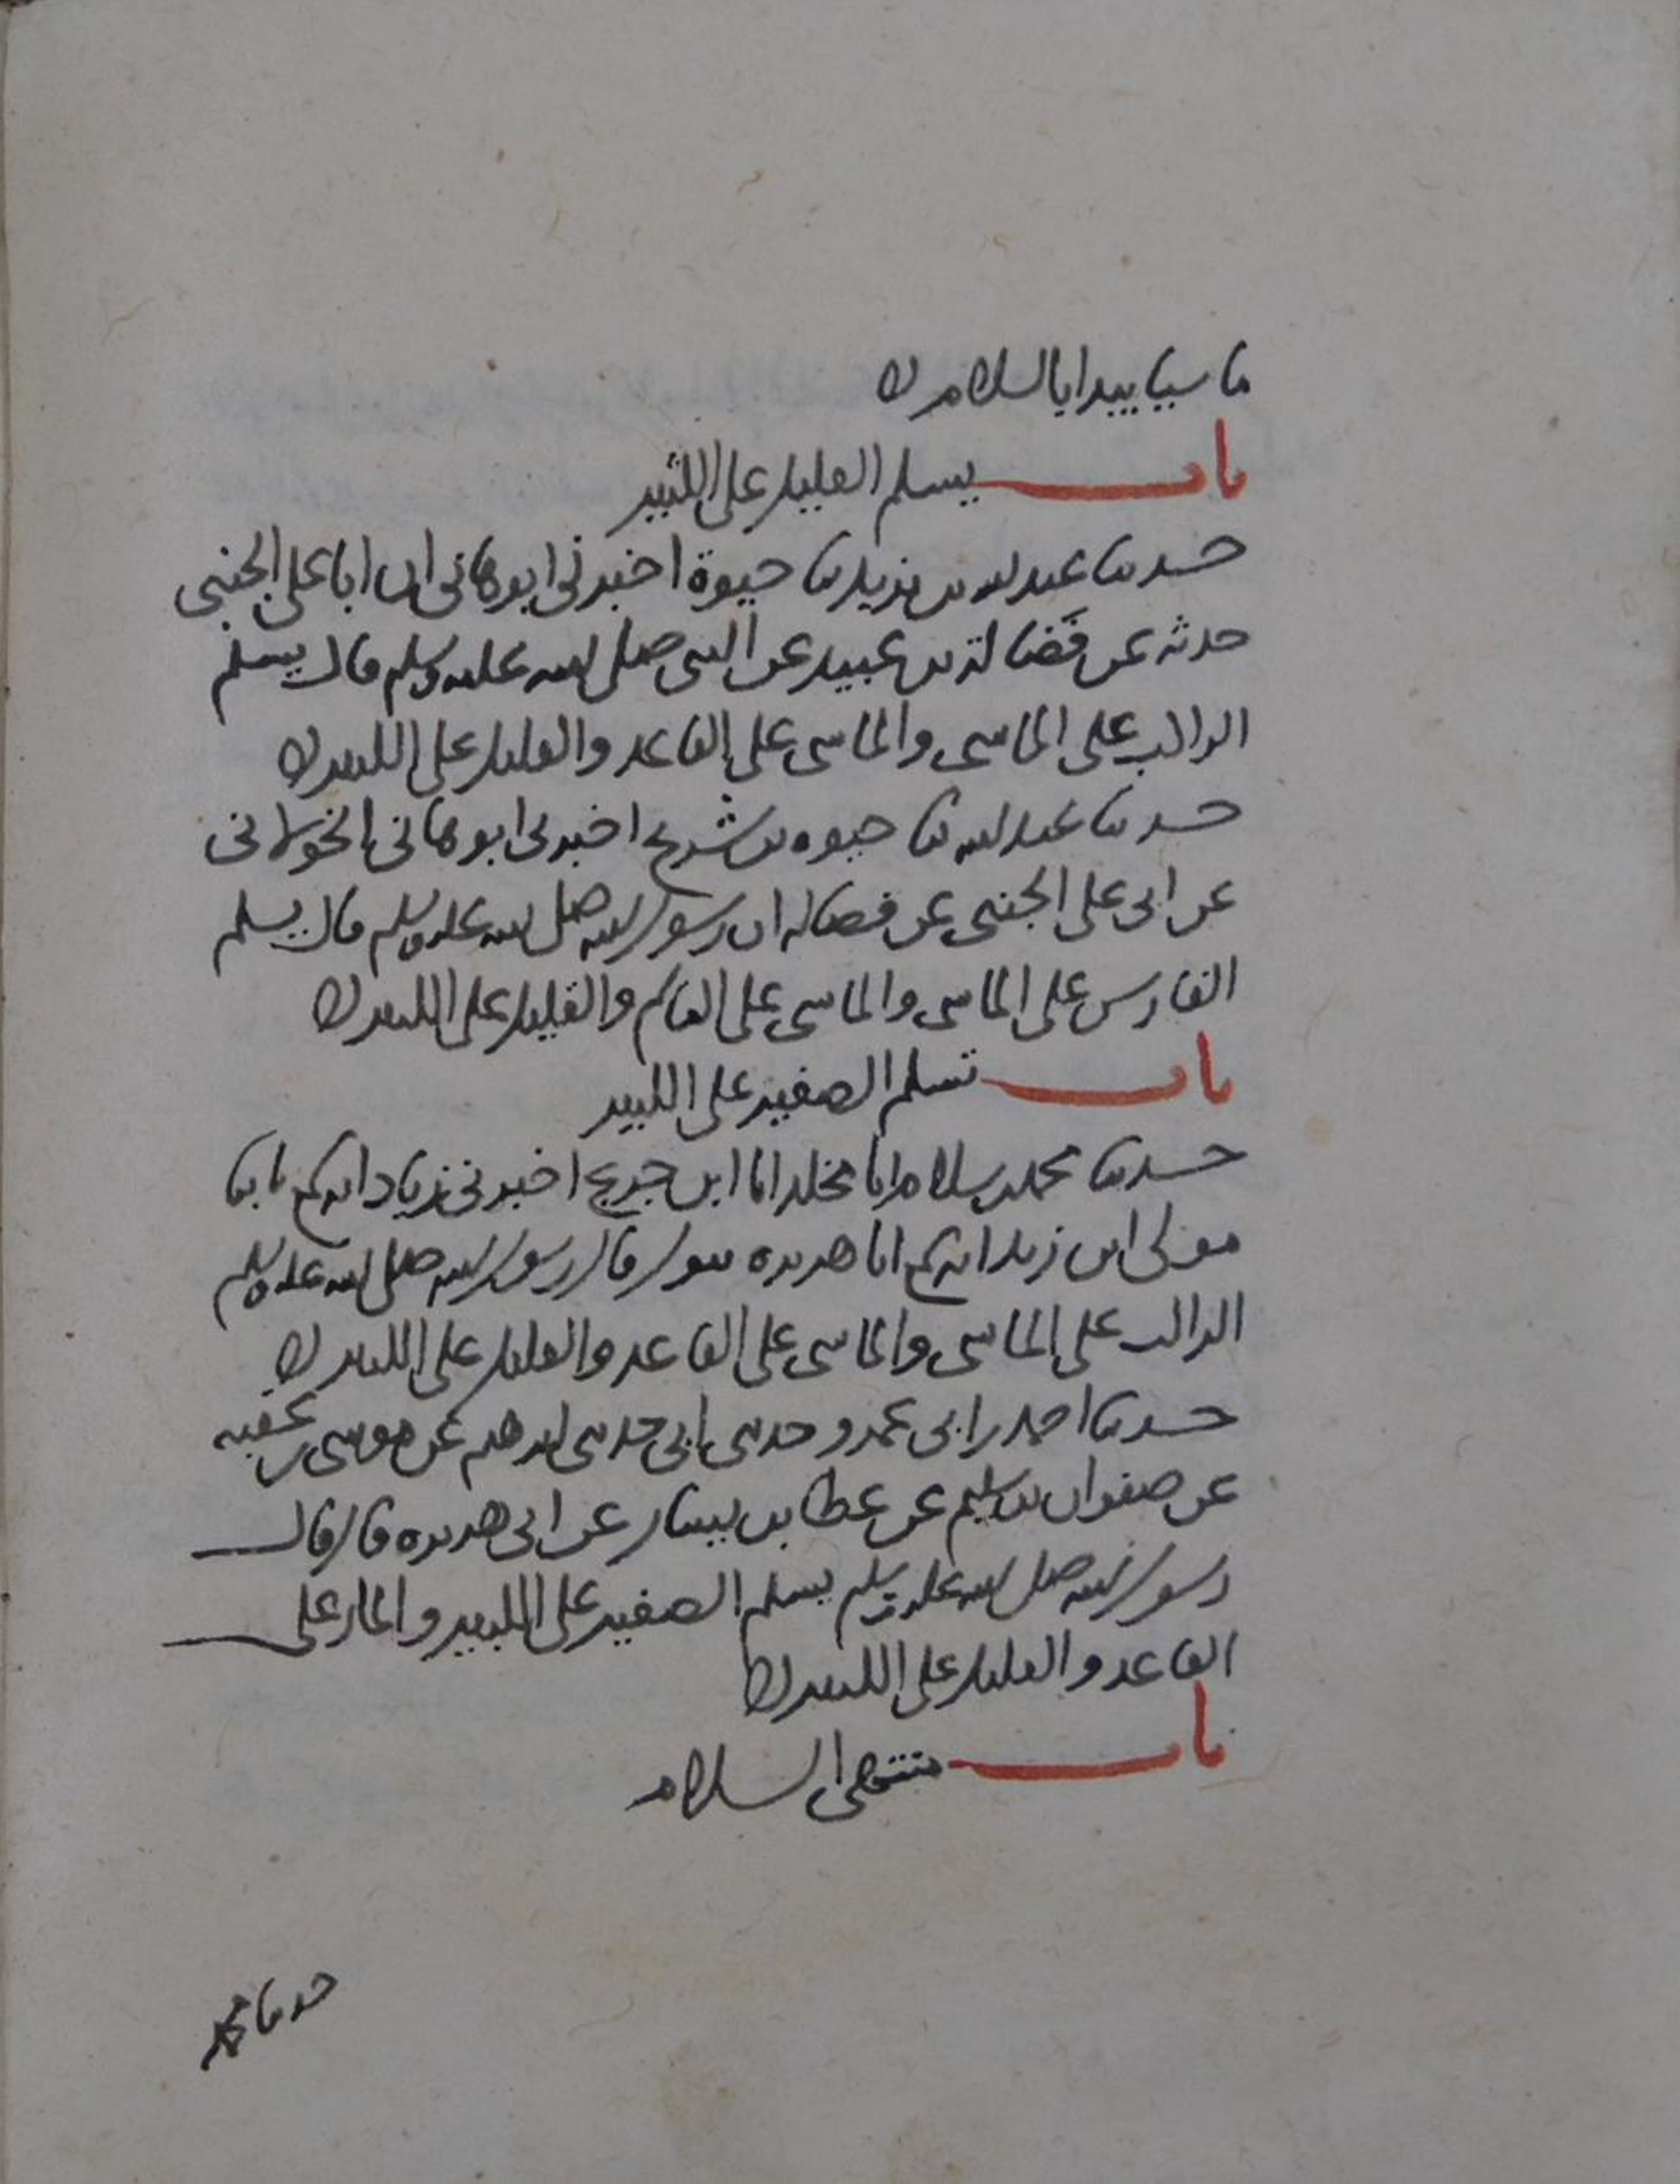 ماشيا يبدا بالسلام ه
باب يسلم القليل على الكثير
حدثنا عبد الله بن يزيد ثنا حيوة اخبرني ابو هاني ان ابا علي الجنبي
حدثه عن فضالة بن عبيد عن النبي صلى الله عليه وسلم قال يسلم
الراكب على الماشي والماشي على القاعد والقليل على الكثير ه
حدثنا عبد الله ثنا حيوه بن شريح اخبرني ابو هاني الخولاني
عن ابي علي الجنبي عن فضاله ان رسول الله صلى الله عليه وسلم قال يسلم
الفارس على الماشي والماشي على القائم والقليل على الكثير ه
باب تسليم الصغير على الكبير
حدثنا محمد بن سلام انا مخلد انا ابن جريج اخبرني زياد انه سمع ثابتا
مولى ابن زيد انه سمع ابا هريره يقول قال رسول الله صلى الله عليه وسلم
الراكب على الماشي والماشي على القاعد والقليل على الكثير ه
حدثنا احمد بن ابي عمرو حدثني ابي حدثني ابرهيم عن موسى بن عقبه
عن صفوان بن سليم عن عطا بن يسار عن ابي هريره قال قال
رسول الله صلى الله عليه وسلم يسلم الصغير على الكبير والمار على
القاعد والقليل على الكثير ه
باب منتهى السلام
حدثنا محمد